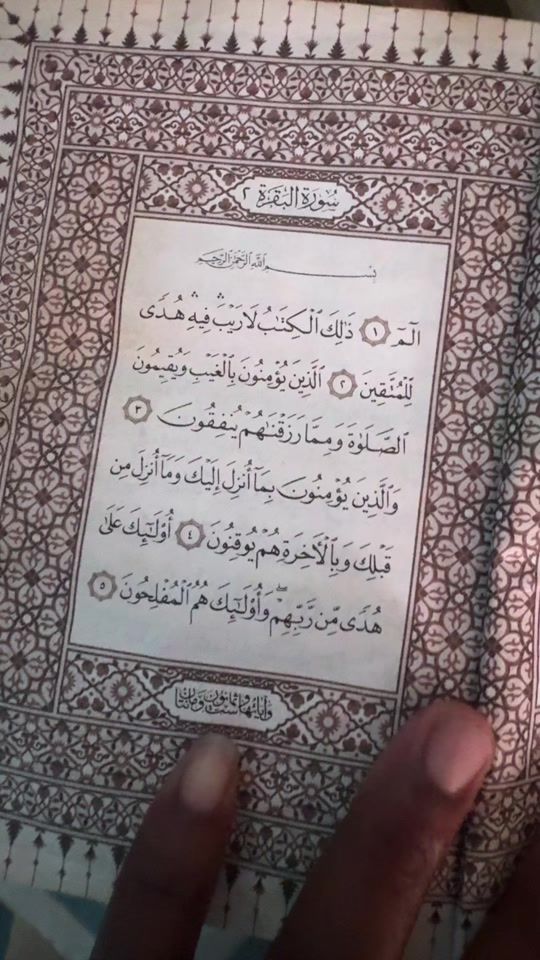 سُورَةُ البَقَرَةِ ٢
بِسْمِ ٱللَّهِ ٱلرَّحْمَٰنِ ٱلرَّحِيمِ
الٓمٓ ١ ذَٰلِكَ ٱلْكِتَٰبُ لَا رَيْبَۛ فِيهِۛ هُدًى
لِّلْمُتَّقِينَ ٢ ٱلَّذِينَ يُؤْمِنُونَ بِٱلْغَيْبِ وَيُقِيمُونَ
ٱلصَّلَوٰةَ وَمِمَّا رَزَقْنَٰهُمْ يُنفِقُونَ ٣
وَٱلَّذِينَ يُؤْمِنُونَ بِمَآ أُنزِلَ إِلَيْكَ وَمَآ أُنزِلَ مِن
قَبْلِكَ وَبِٱلْءَاخِرَةِ هُمْ يُوقِنُونَ ٤ أُو۟لَٰٓئِكَ عَلَىٰ
هُدًى مِّن رَّبِّهِمْۖ وَأُو۟لَٰٓئِكَ هُمُ ٱلْمُفْلِحُونَ ٥
وآياتها ست وثمانون ومائتان